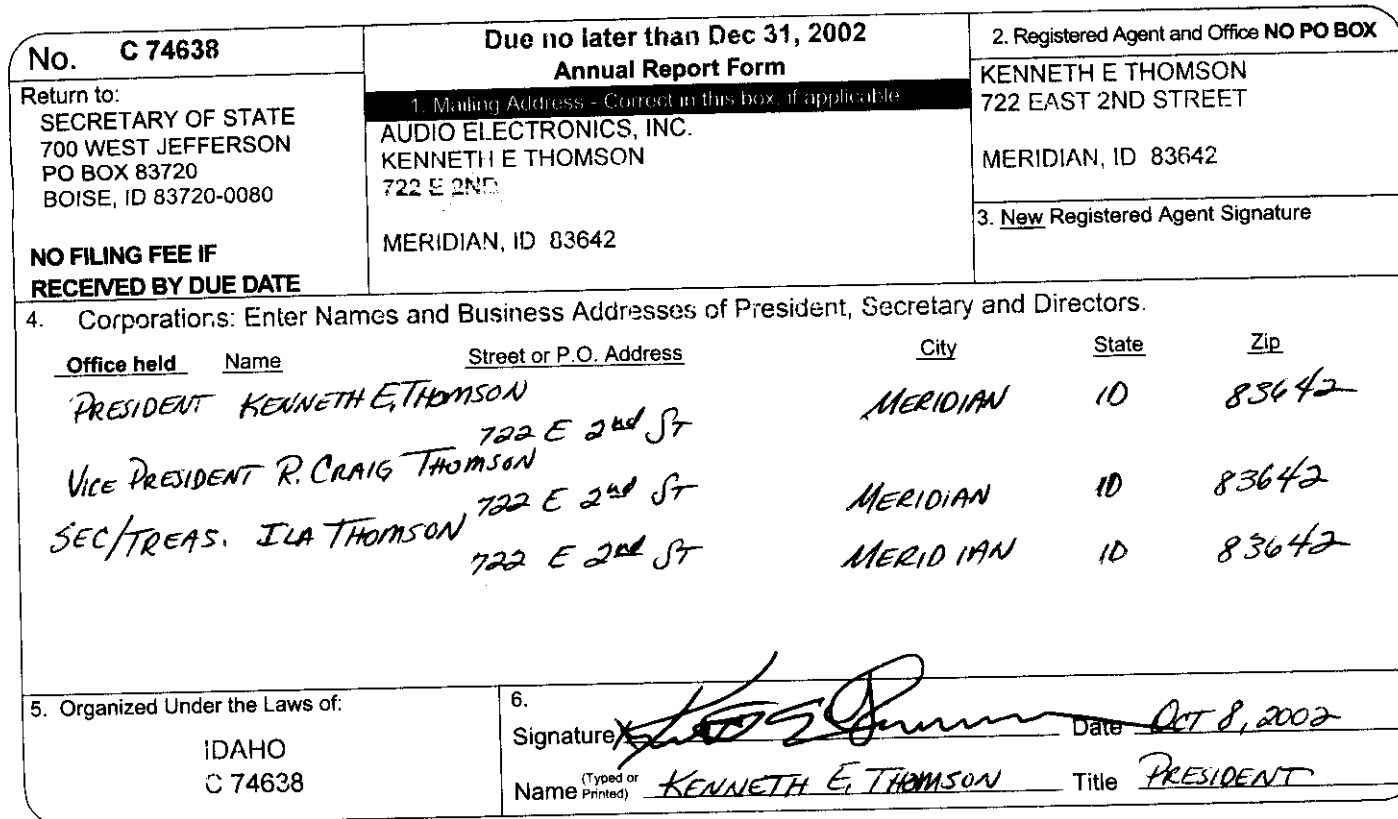 No. C 74638
Return to:
SECRETARY OF STATE
700 WEST JEFFERSON
PO BOX 83720
BOISE, ID 83720-0080
NO FILING FEE IF
RECEIVED BY DUE DATE
Due no later than Dec 31, 2002
Annual Report Form
1. Mailing Address - Correct in this box, if applicable
AUDIO ELECTRONICS, INC.
KENNETH E THOMSON
722 E 2ND
MERIDIAN, ID 83642
2. Registered Agent and Office NO PO BOX
KENNETH E THOMSON
722 EAST 2ND STREET
MERIDIAN, ID 83642
3. New Registered Agent Signature
4. Corporations: Enter Names and Business Addresses of President, Secretary and Directors.
Office held Name Street or P.O. Address City State Zip
PRESIDENT KENNETH E. THOMSON
722 E 2nd ST MERIDIAN ID 83642
VICE PRESIDENT R. CRAIG THOMSON
722 E 2nd ST MERIDIAN ID 83642
SEC/TREAS. ILA THOMSON
722 E 2nd ST MERIDIAN ID 83642
5. Organized Under the Laws of:
IDAHO
C 74638
6.
Signature X Date OCT 8, 2002
Name (Typed or Printed) KENNETH E. THOMSON Title PRESIDENT